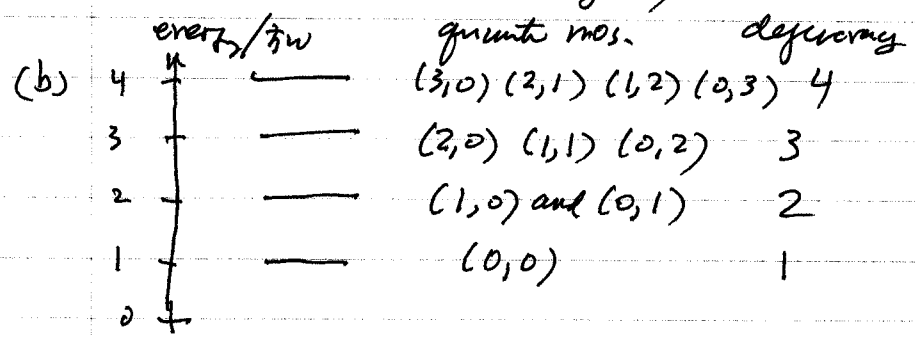 energy/ħω quantu nos. degeneracy
(b) 4 (3,0) (2,1) (1,2) (0,3) 4
3 (2,0) (1,1) (0,2) 3
2 (1,0) and (0,1) 2
1 (0,0) 1
0